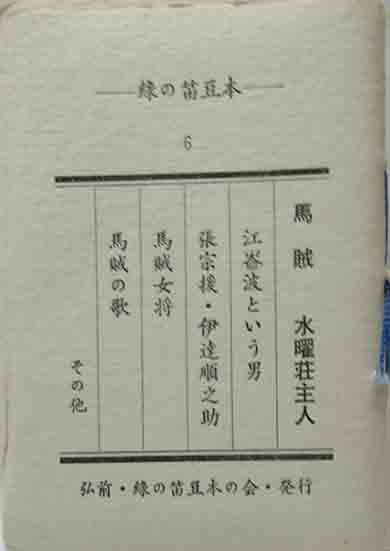 ——緑の笛豆本——
6
馬賊 水曜荘主人
江崙波という男
張宗援・伊達順之助
馬賊女将
馬賊の歌
その他
弘前・緑の笛豆本の会・発行